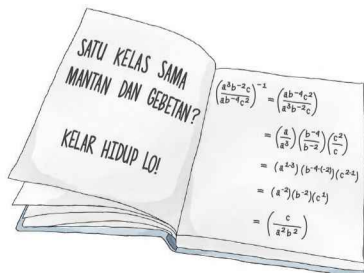 SATU KELAS SAMA
MANTAN DAN GEBETAN?
KELAR HIDUP LO!
(a³b⁻²c / ab⁻⁴c²)⁻¹ = (ab⁻⁴c² / a³b⁻²c)
= (a / a³) (b⁻⁴ / b⁻²) (c² / c)
= (a¹⁻³) (b⁻⁴⁻⁽⁻²⁾) (c²⁻¹)
= (a⁻²) (b⁻²) (c¹)
= (c / a²b²)